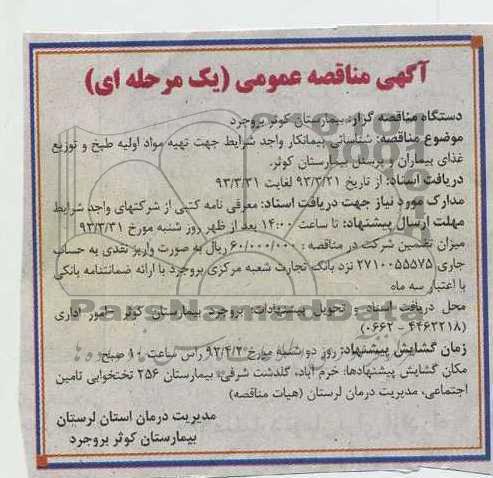 آگهی مناقصه عمومی (یک مرحله ای)
دستگاه مناقصه گزار: بیمارستان کوثر بروجرد
موضوع مناقصه: شناسائی پیمانکار واجد شرایط جهت تهیه مواد اولیه طبخ و توزیع
غذای بیماران و پرسنل بیمارستان کوثر.
دریافت اسناد: از تاریخ ۹۳/۳/۲۱ لغایت ۹۳/۳/۳۱
مدارک مورد نیاز جهت دریافت اسناد: معرفی نامه کتبی از شرکتهای واجد شرایط
مهلت ارسال پیشنهاد: تا ساعت ۱۴:۰۰ بعد از ظهر روز شنبه مورخ ۹۳/۳/۳۱
میزان تضمین شرکت در مناقصه: ۶۰/۰۰۰/۰۰۰ ریال به صورت واریز نقدی به حساب
جاری ۲۷۱۰۰۵۵۵۷۵ نزد بانک تجارت شعبه مرکزی بروجرد یا ارائه ضمانتنامه بانکی
با اعتبار سه ماه
محل دریافت اسناد و تحویل پیشنهادات: بروجرد بیمارستان کوثر امور اداری
(۴۴۶۲۲۱۸ - ۰۶۶۲)
زمان گشایش پیشنهاد: روز دوشنبه مورخ ۹۳/۴/۲ راس ساعت ۱۰ صبح
مکان گشایش پیشنهادها: خرم آباد، گلدشت شرقی، بیمارستان ۲۵۶ تختخوابی تامین
اجتماعی، مدیریت درمان لرستان (هیات مناقصه)
مدیریت درمان استان لرستان
بیمارستان کوثر بروجرد
ParsNamadData